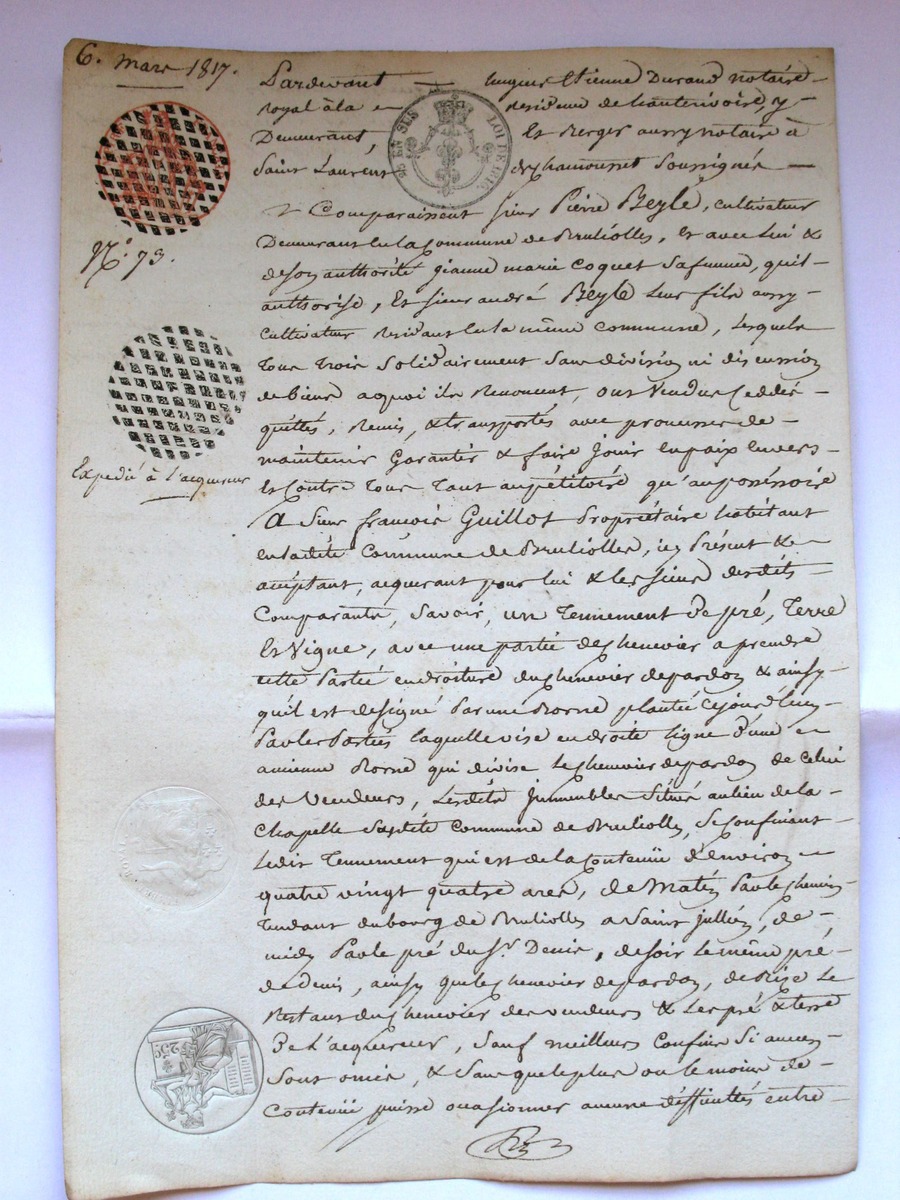 6. mars 1817.
Pardevant hugues Etienne Durand notaire
royal à la residence de hauterivoire, y
Demeurant, Et Berger aussy notaire à
Saint Laurent de Chamousset soussignés
EN SUS LOI DE 1816
Comparaissent sieur Pierre Beylé, cultivateur
Demeurant en la commune de Brulliolles, Et avec lui &
N.o 73.
de son authorité jeanne marie Coquet sa femme, qu'il
authorise, Et sieur andré Beylé leur fils aussy
cultivateur residant en la même commune, lesquels
tous trois solidairement sans division ni discussion
de biens a quoi ils renoncent, ont vendus ceddés
quittés, remis, & transportés avec promesse de
maintenir garantir & faire jouir en paix envers
Expedié à l'acquereur
Et Contre tous tant au pétitoire qu'au possessoire
A sieur françois Guillot propriétaire habitant
en ladite Commune de Brulliolles, icy présent &
acceptant, acquerant pour lui & les siens desdits
Comparants, savoir, un tennement de pré, terre
Et Vigne, avec une partie de chenevier a prendre
cette partie en droiture du chenevier de pardon & ainsy
qu'il est designé par une borne planté cejourd'huy
par les parties laquelle vise en droite ligne d'une
ancienne borne qui divise le chenevier de pardon de celui
des vendeurs, lesdits immeubles situés au lieu de la
Chapelle susdite commune de Brulliolles, se confinant
ledit tennement qui est de la contenüe d'environ
quatre vingt quatre ares, de matin par le chemin
tendant du bourg de Brulliolles a saint jullien, de
midy par le pré du Sr. Denis, de soir le même pré
de Denis, ainsy que le chenevier de pardon, de bise le
restant du chenevier des vendeurs & les pré & terre
25c.
de l'acquereur, sauf meilleurs confins si aucuns
sont omis, & sans que le plus ou le moins de
contenüe puisse ocasionner aucune difficultés entre